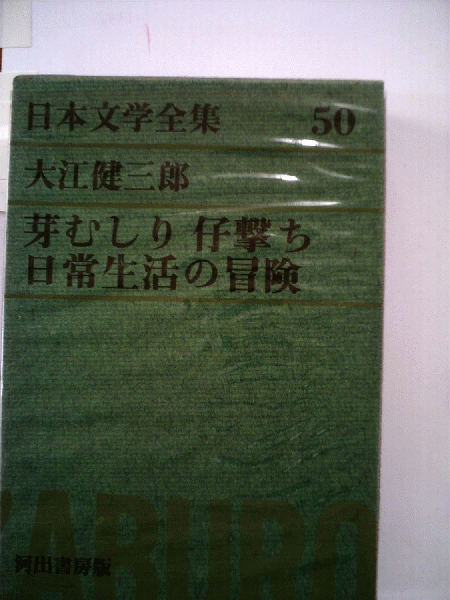 日本文学全集 50
大江健三郎
芽むしり 仔撃ち
日常生活の冒険
ZABURO
河出書房版